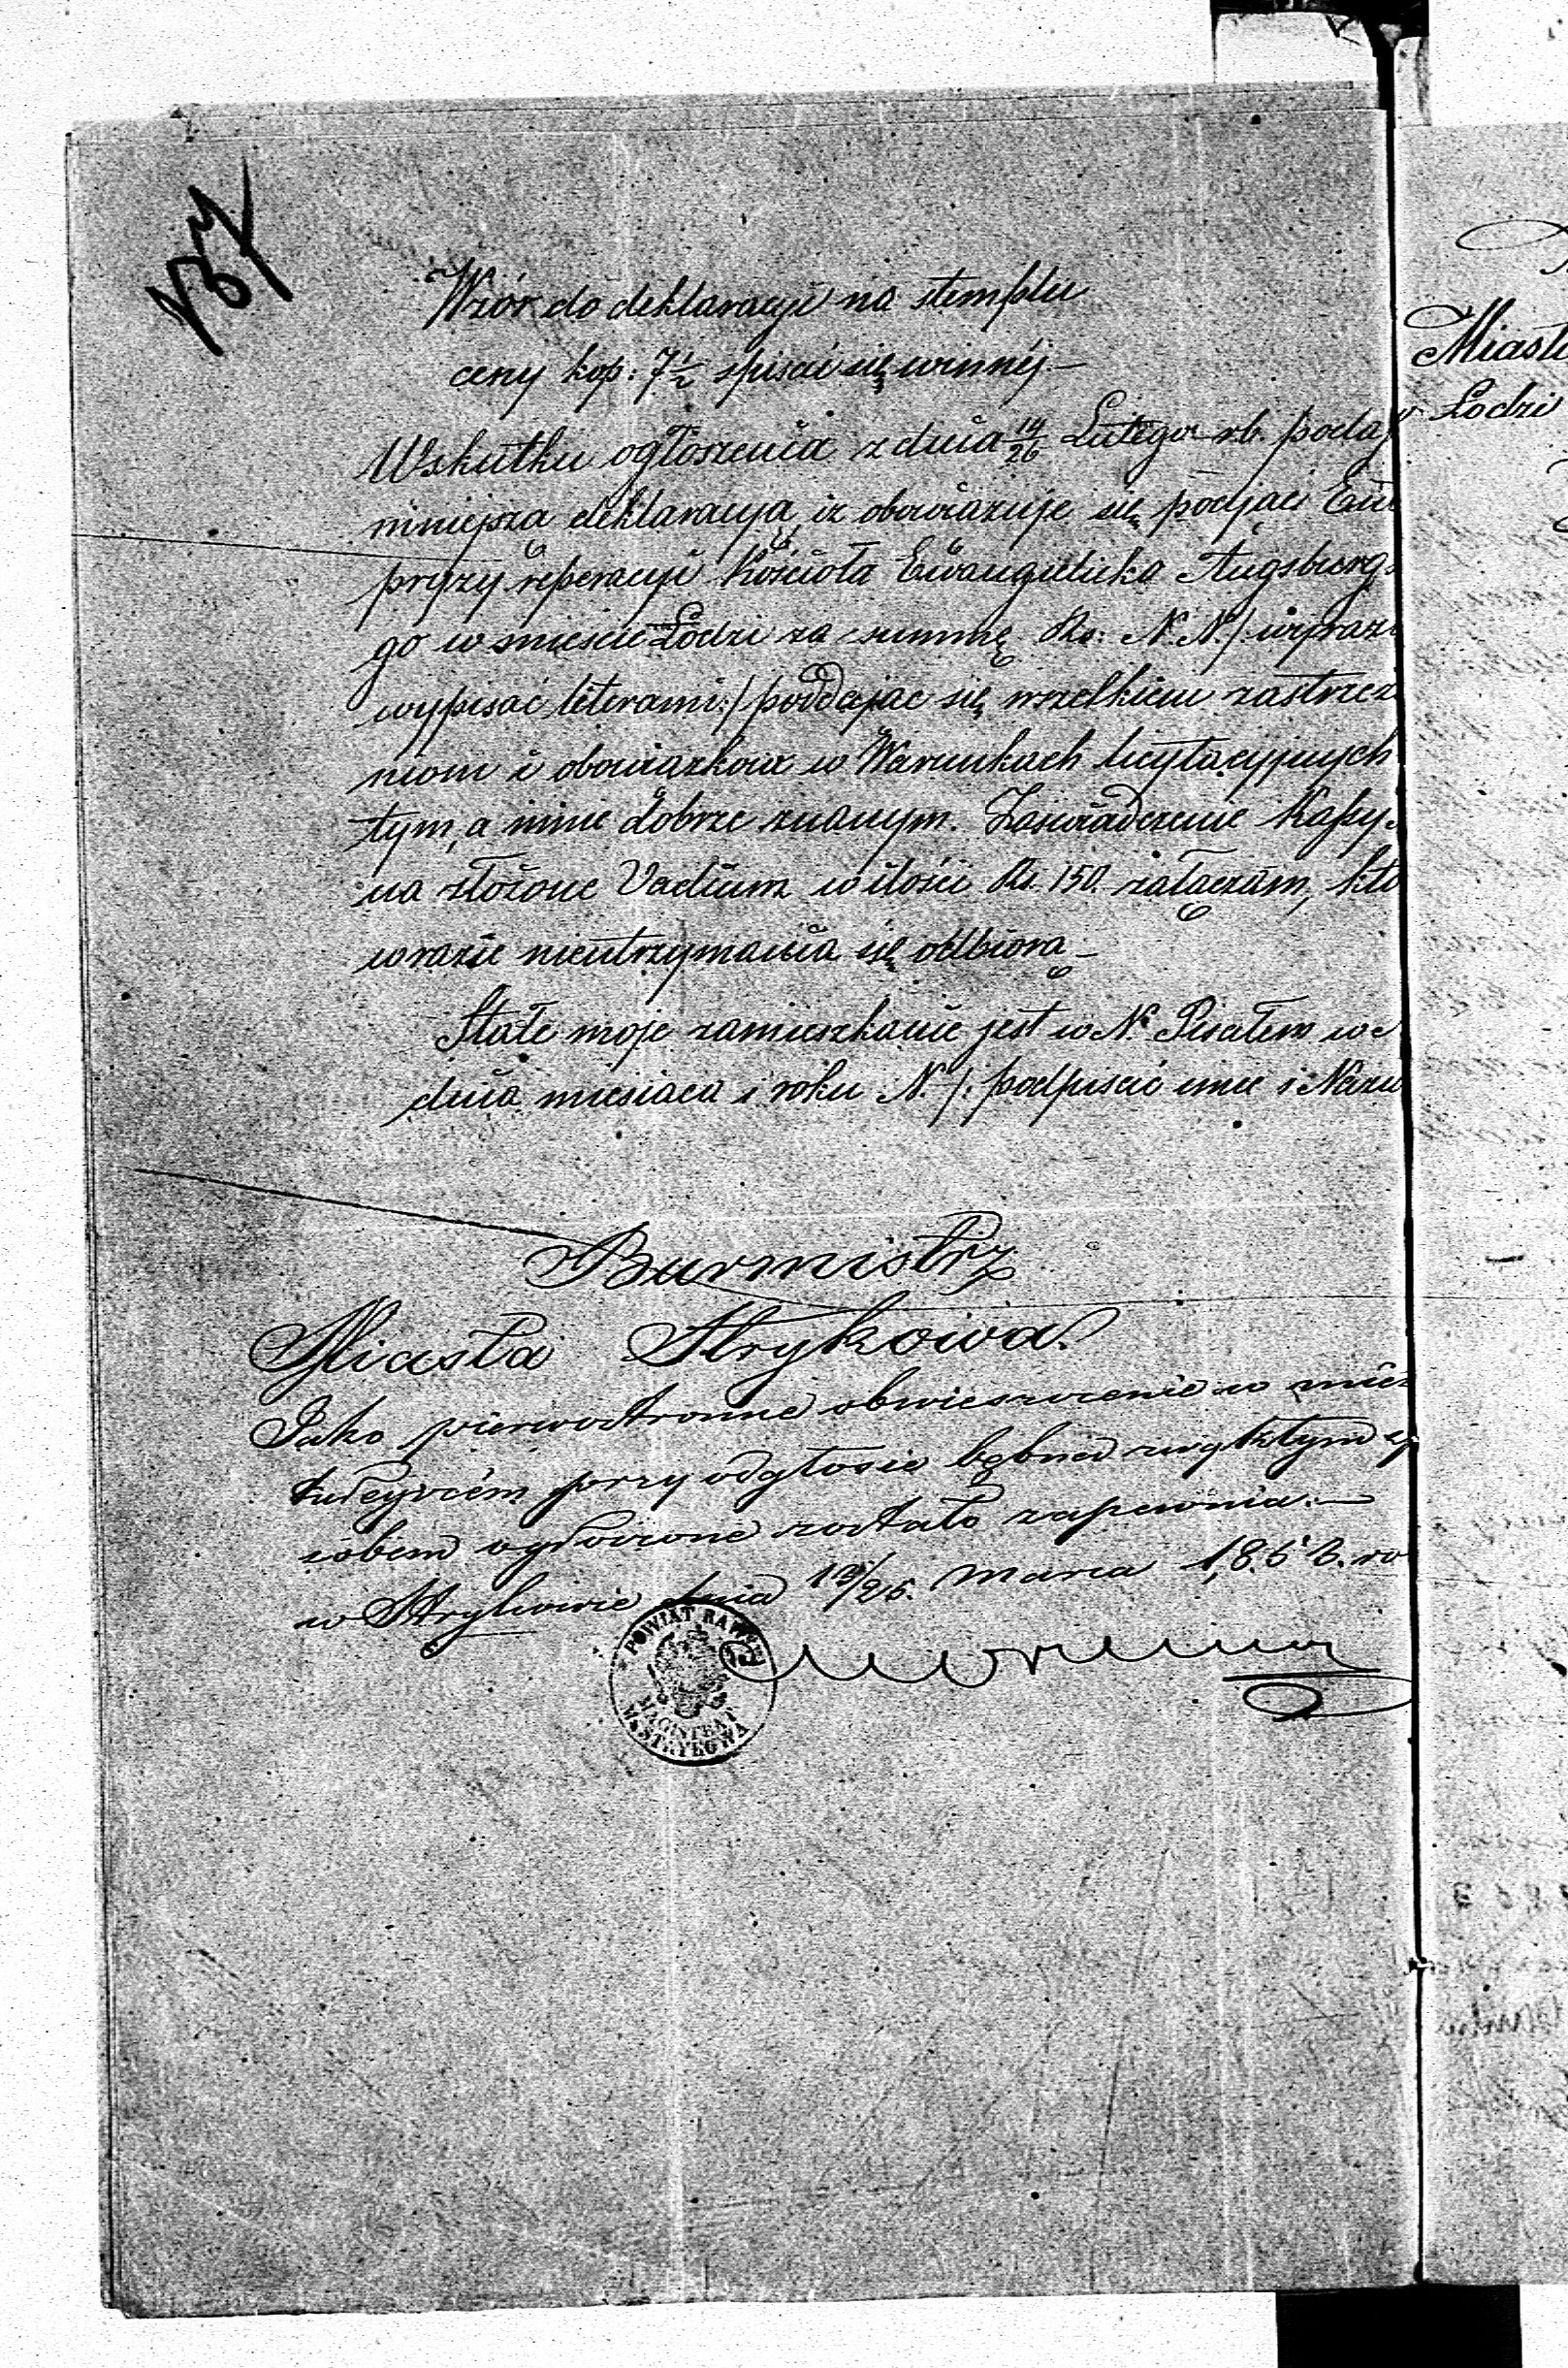 Wzór do deklaracyi na stemplu
ceny kop: 7½ spisać się winnéj. –
Wskutku ogłoszenia z dnia 14/26 Lutego r.b. podaj
niniejszą deklaracyą, iż obowiązuje się podjąć
przy reperacyi Kościoła Ewangelicko Augsburgs
go w mieście Łodzi za summę Rs: N.N. /: wyraz
wypisać literami :/ poddając się wszelkim zastrzeż
niom i obowiązkom w Warunkach licytacyjnych
tym, a mnie dobrze znanym. Zaświadczenie Kassy
na złożone Vadium w ilości Rs. 150. załączam, któ
w razie nieutrzymania się odbiorą –
Stałe moje zamieszkanie jest w N. Pisałem w
dnia miesiąca i roku N. /: podpisać imie i Nazw
Burmistrz
Miasta Strykowa.
Jako pierwostronne obwieszczenie w mieś
tuteyszém przy odgłosie bębna zwykłym sp
sobem ogłoszone zostało zapewnia. –
w Strykowie dnia 13/25. Marca 1863. ro
POWIAT RAWSKI
MAGISTRAT
M. STRYKOWA
Miasta
Łodzi